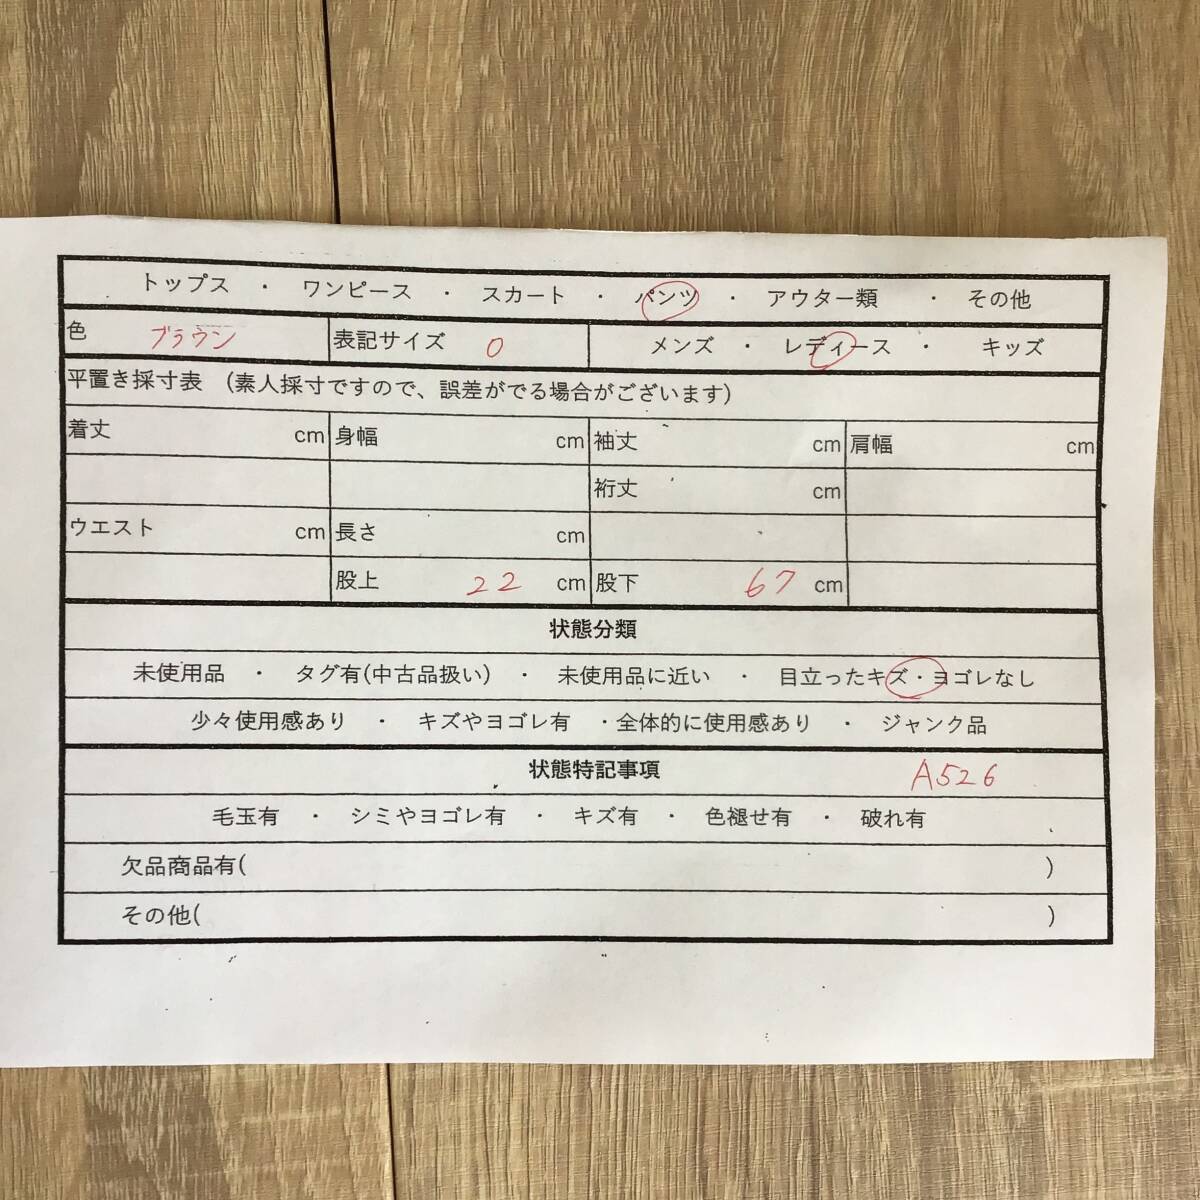 トップス ・ ワンピース ・ スカート ・ パンツ ・ アウター類 ・ その他
色 ブラウン 表記サイズ 0 メンズ ・ レディース ・ キッズ
平置き採寸表 (素人採寸ですので、誤差がでる場合がございます)
着丈 cm 身幅 cm 袖丈 cm 肩幅 cm
裄丈 cm
ウエスト cm 長さ cm
股上 22 cm 股下 67 cm
状態分類
未使用品 ・ タグ有(中古品扱い) ・ 未使用品に近い ・ 目立ったキズ・ヨゴレなし
少々使用感あり ・ キズやヨゴレ有 ・全体的に使用感あり ・ ジャンク品
状態特記事項 A526
毛玉有 ・ シミやヨゴレ有 ・ キズ有 ・ 色褪せ有 ・ 破れ有
欠品商品有( )
その他( )